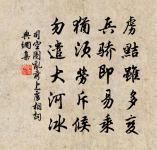 虜黠雖多變
兵驕即易乘
猶須勞斥候
勿遣大河冰
司空圖亂前上盧相詞
典網集